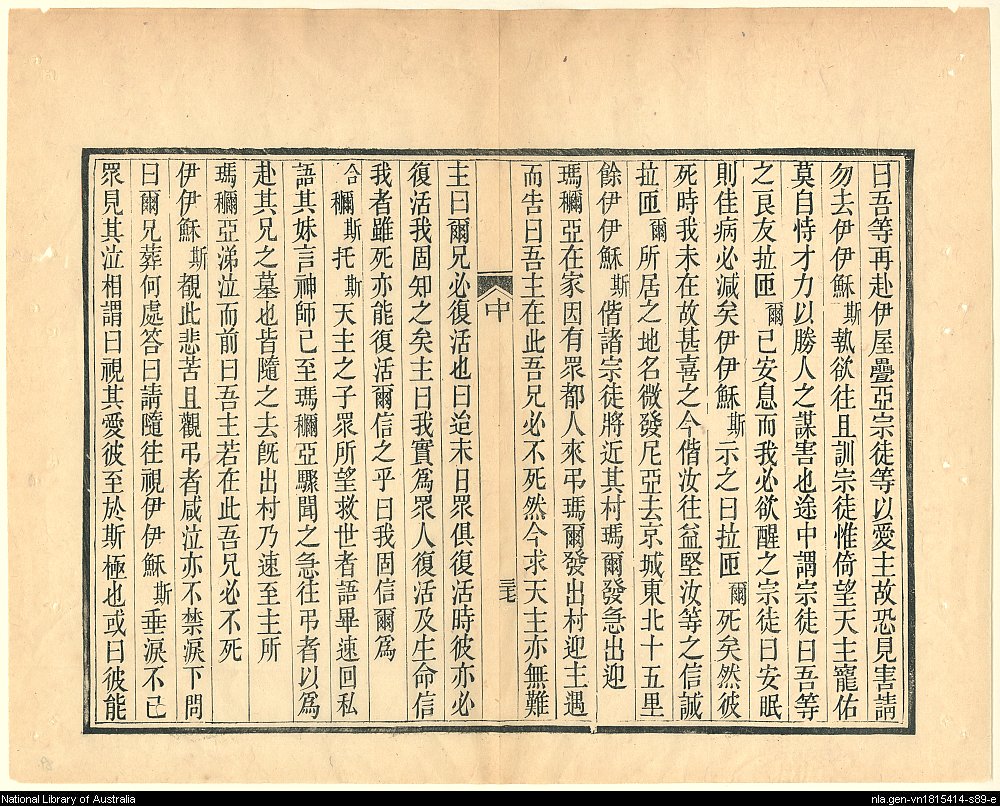 曰吾等再赴伊屋疊亞宗徒等以愛主故恐見害請
勿去伊伊穌斯執欲往且訓宗徒惟倚望天主寵佑
莫自恃才力以勝人之謀害也途中謂宗徒曰吾等
之良友拉匝爾已安息而我必欲醒之宗徒曰安眠
則佳病必減矣伊伊穌斯示之曰拉匝爾死矣然彼
死時我未在故甚喜之今偕汝往益堅汝等之信誠
拉匝爾所居之地名微發尼亞去京城東北十五里
餘伊伊穌斯偕諸宗徒將近其村瑪爾發急出迎
瑪穪亞在家因有眾都人來弔瑪爾發出村迎主遇
而告曰吾主在此吾兄必不死然今求天主亦無難
中
三七
主曰爾兄必復活也曰迨末日眾俱復活時彼亦必
復活我固知之矣主曰我實為眾人復活及生命信
我者雖死亦能復活爾信之乎曰我固信爾為
合穪斯托斯天主之子眾所望救世者語畢速回私
語其妹言神師已至瑪穪亞驟聞之急往弔者以為
赴其兄之墓也皆隨之去旣出村乃速至主所
瑪穪亞涕泣而前曰吾主若在此吾兄必不死
伊伊穌斯覩此悲苦且觀弔者咸泣亦不禁淚下問
曰爾兄葬何處答曰請隨往視伊伊穌斯垂淚不已
眾見其泣相謂曰視其愛彼至於斯極也或曰彼能
National Library of Australia
nla.gen-vn1815414-s89-e